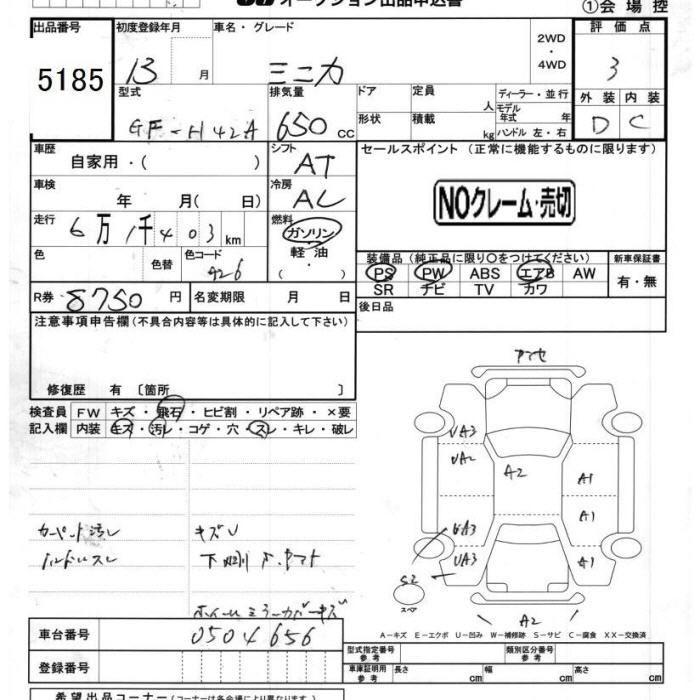 オークション出品申込書
①会場控
出品番号 初度登録年月 車名・グレード 評価点
5185 13 月 ミニカ 2WD・4WD 3
型式 排気量 ドア 定員 人 ディーラー・並行 外装 内装
GF-H42A 650 cc 形状 積載 kg モデル年式 年 ハンドル 左・右 D C
車歴 自家用・( ) シフト AT セールスポイント (正常に機能するものに限ります)
車検 年 月(日) 冷房 AC
NOクレーム・売切
走行 6万1千403km 燃料 ガソリン
軽油
・( )
色 色替 色コード 926
装備品 (純正品に限り〇をつけてください) 新車保証書
PS PW ABS エアB AW 有・無
SR ナビ TV カワ
R券 8750円 名変期限 月 日 後日品
注意事項申告欄 (不具合内容等は具体的に記入して下さい)
修復歴 有 〔箇所 〕
検査員 FW キズ・飛石・ヒビ割・リペア跡・×要
記入欄 内装 キズ・汚レ・コゲ・穴・スレ・キレ・破レ
カーペット汚レ キズU
ハンドルスレ
アマセ
UA3
UA2 A2 A1
A1
UA3
UA3 A1
S2
スペア
A2
A-キズ E-エクボ U-凹み W-補修跡 S-サビ C-腐食 XX-交換済
車台番号 0504656
登録番号
型式指定番号 参考 類別区分番号 参考
車庫証明用 参考 長さ cm 幅 cm 高さ cm
希望出品コーナー (コーナーは各会場により異なります)